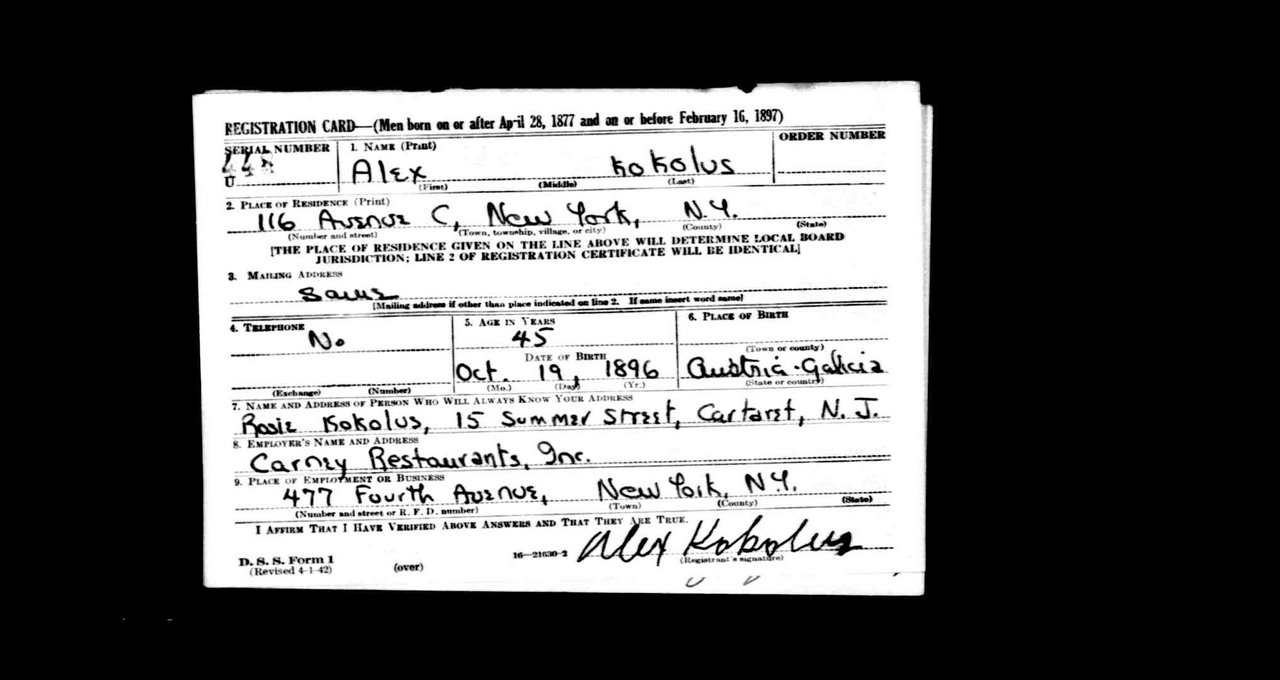 REGISTRATION CARD—(Men born on or after April 28, 1877 and on or before February 16, 1897)
SERIAL NUMBER 1. NAME (Print) ORDER NUMBER
U Alex Kokolus
(First) (Middle) (Last)
2. PLACE OF RESIDENCE (Print)
116 Avenue C, New York, N.Y.
(Number and street) (Town, township, village, or city) (County) (State)
[THE PLACE OF RESIDENCE GIVEN ON THE LINE ABOVE WILL DETERMINE LOCAL BOARD
JURISDICTION; LINE 2 OF REGISTRATION CERTIFICATE WILL BE IDENTICAL]
3. MAILING ADDRESS
Same
[Mailing address if other than place indicated on line 2. If same insert word same]
4. TELEPHONE 5. AGE IN YEARS 6. PLACE OF BIRTH
No 45
(Town or county)
DATE OF BIRTH
Oct. 19, 1896 Austria-Galicia
(Exchange) (Number) (Mo.) (Day) (Yr.) (State or country)
7. NAME AND ADDRESS OF PERSON WHO WILL ALWAYS KNOW YOUR ADDRESS
Rosie Kokolus, 15 Summer Street, Cartaret, N. J.
8. EMPLOYER'S NAME AND ADDRESS
Carney Restaurants, Inc.
9. PLACE OF EMPLOYMENT OR BUSINESS
477 Fourth Avenue, New York, N.Y.
(Number and street or R. F. D. number) (Town) (County) (State)
I AFFIRM THAT I HAVE VERIFIED ABOVE ANSWERS AND THAT THEY ARE TRUE.
D. S. S. Form 1 16—21630-2 Alex Kokolus
(Revised 4-1-42) (over) (Registrant's signature)